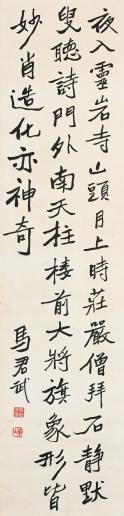 夜入靈岩寺山頭月上時莊嚴僧拜石靜默
叟聽詩門外南天柱樓前大將旗象形皆
妙肖造化亦神奇
馬君武